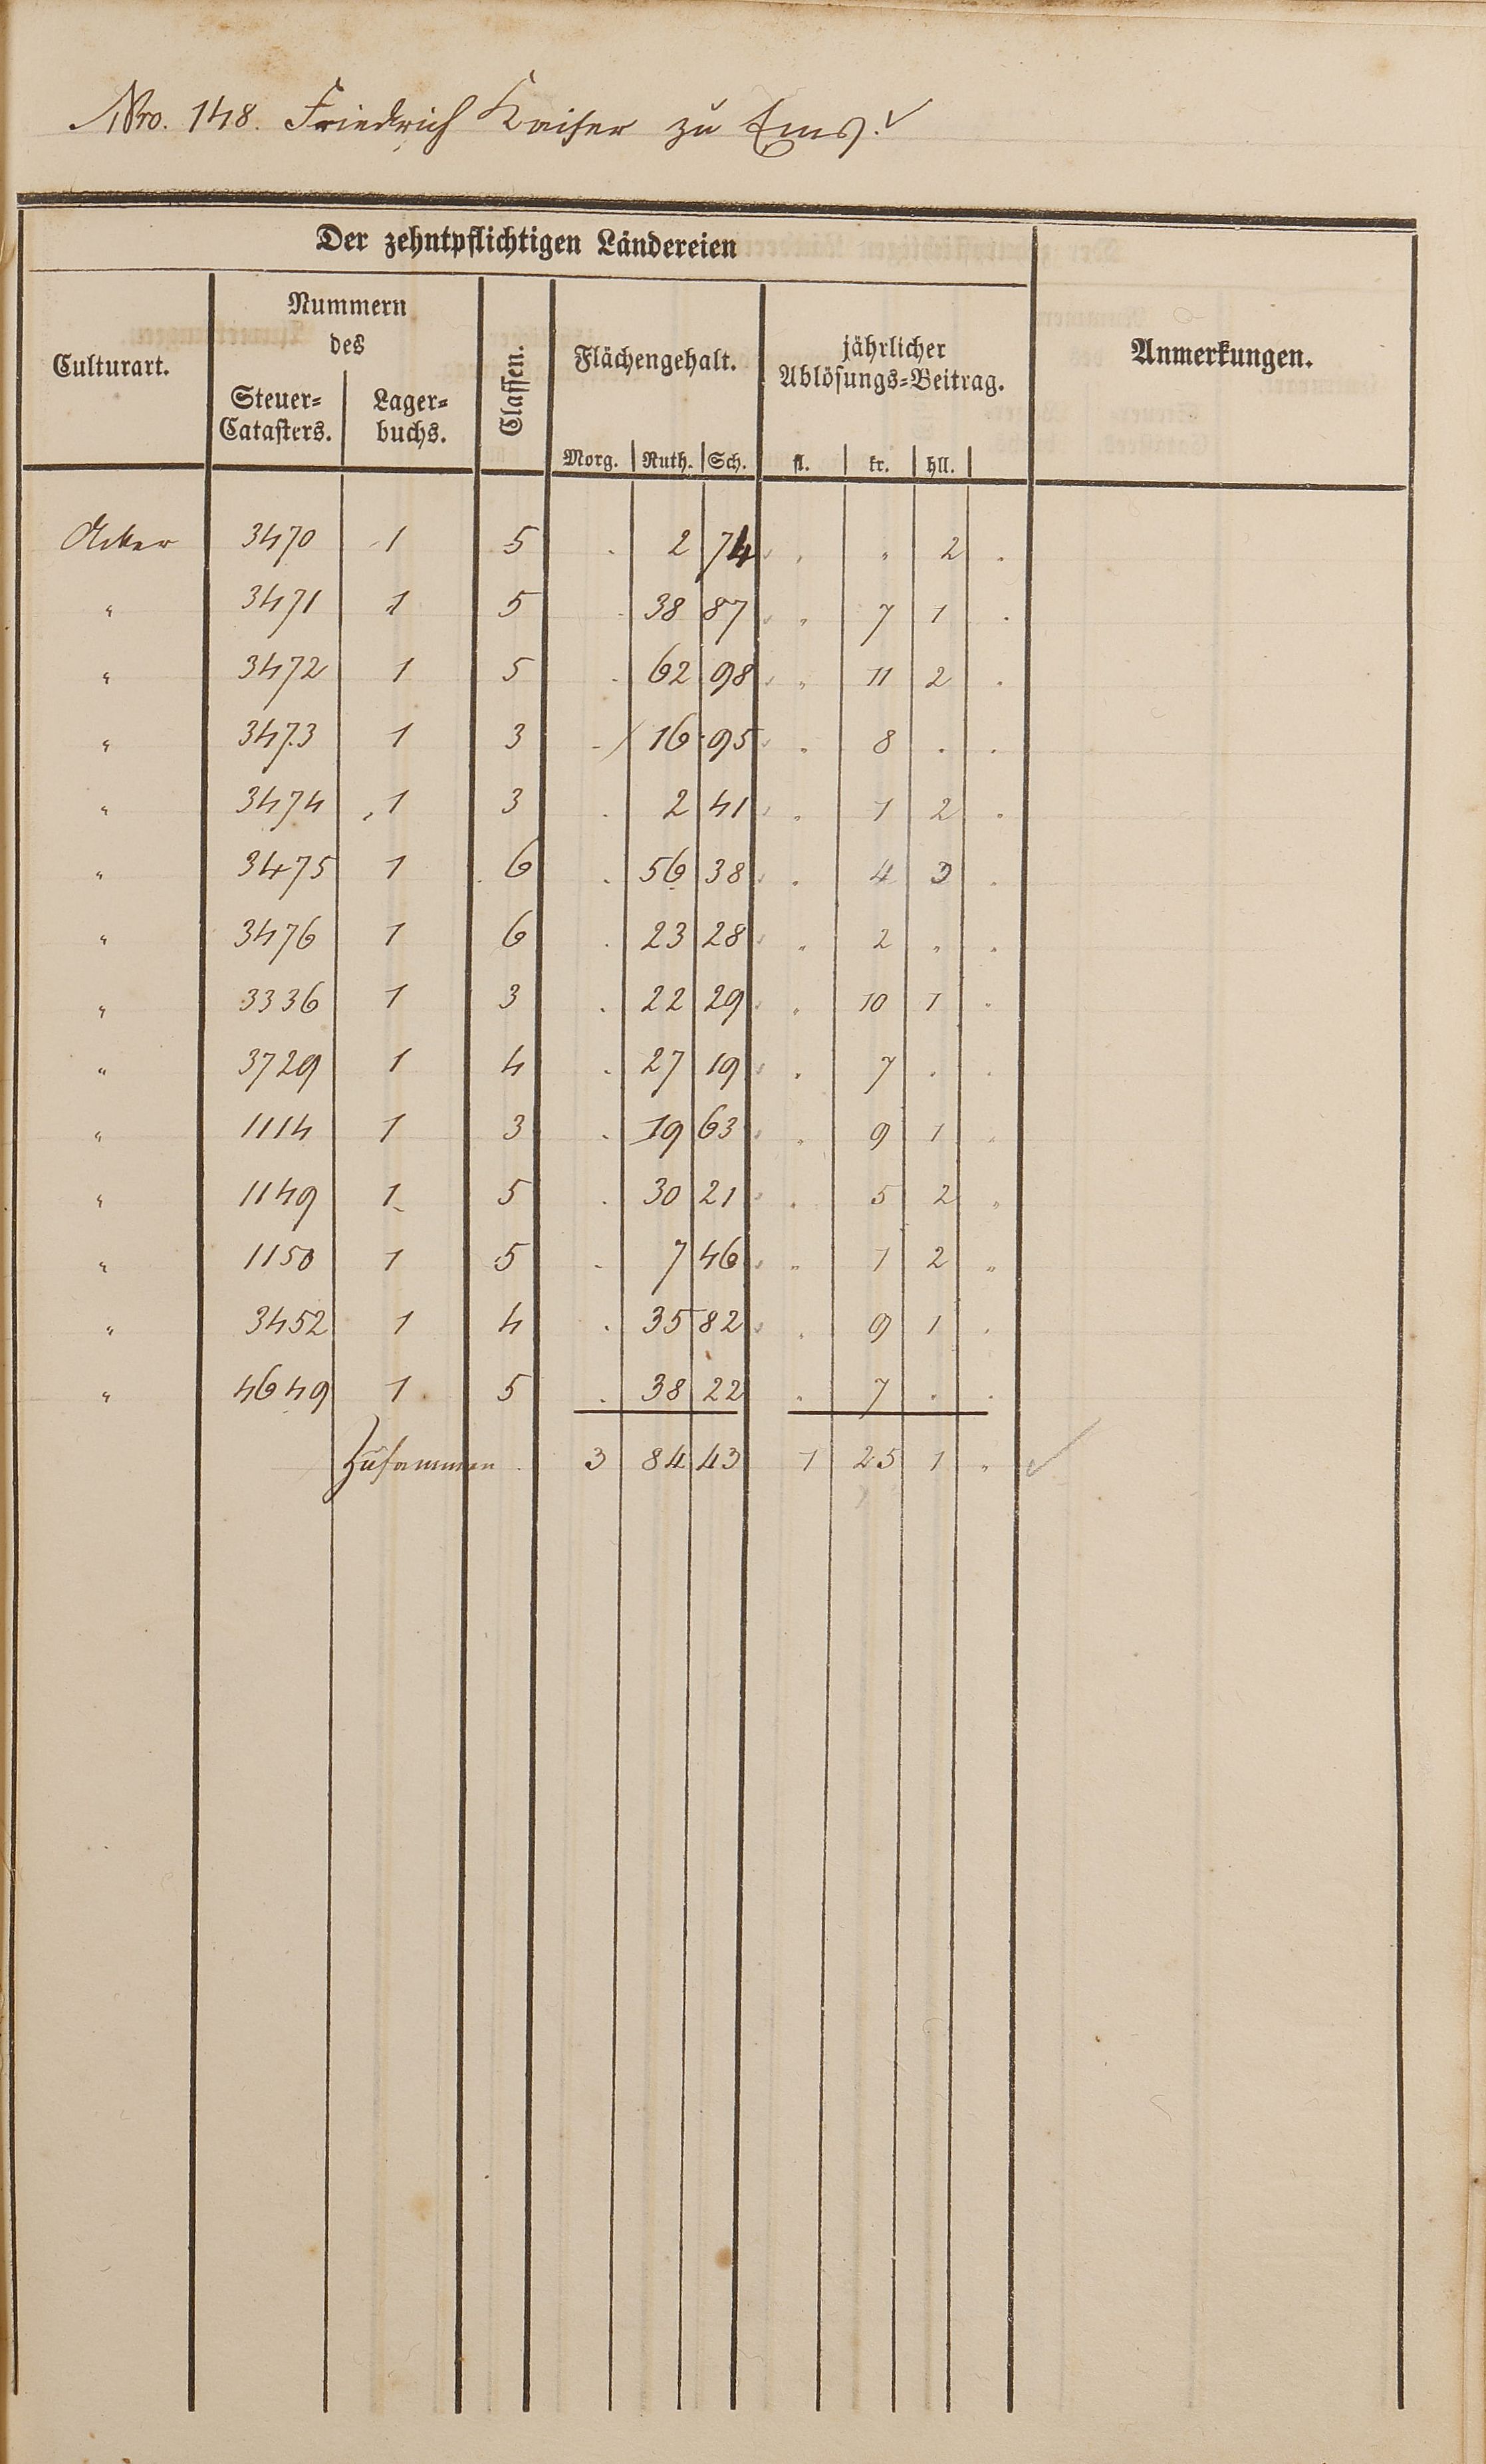 Nro. 148. Friedrich Kaiser zu Ems.
Der zehntpflichtigen Ländereien
Culturart. Nummern des Steuer-Catasters. Lager-buchs. Classen. Flächengehalt. Morg. Ruth. Sch. jährlicher Ablösungs-Beitrag. fl. kr. hll. Anmerkungen.
Acker 3470 1 5 . 2 74 . " 2 .
" 3471 1 5 . 38 87 " 7 1 .
" 3472 1 5 . 62 98 " 11 2 .
" 3473 1 3 . 16 95 " 8 . .
" 3474 1 3 . 2 41 " 1 2 .
" 3475 1 6 . 56 38 . 4 3 .
" 3476 1 6 . 23 28 " 2 " .
" 3336 1 3 . 22 29 " 10 1 "
" 3729 1 4 . 27 19 " 7 . .
" 1114 1 3 . 19 63 " 9 1 .
" 1149 1 5 . 30 21 . 5 2 "
" 1150 1 5 . 7 46 " 1 2 "
" 3452 1 4 . 35 82 . 9 1 .
" 4649 1 5 . 38 22 " 7 . .
Zusammen 3 84 43 1 25 1 "